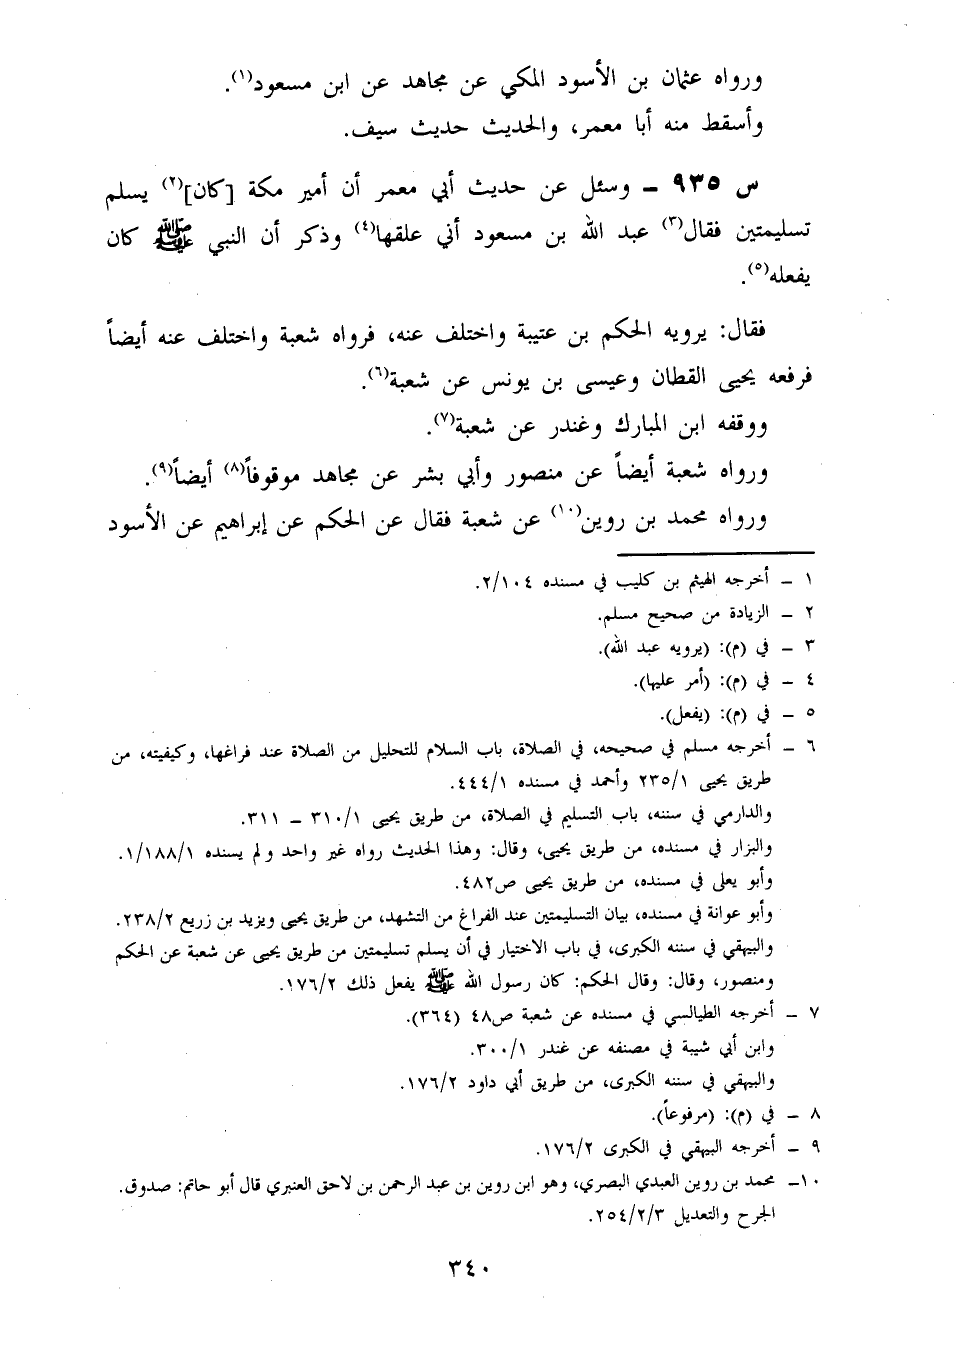 ورواه عثمان بن الأسود المكي عن مجاهد عن ابن مسعود(١).
وأسقط منه أبا معمر، والحديث حديث سيف.
س ٩٣٥ ــ وسئل عن حديث أبي معمر أن أمير مكة [كان](٢) يسلم
تسليمتين فقال(٣) عبد الله بن مسعود أني علقها(٤) وذكر أن النبي ﷺ كان
يفعله(٥).
فقال: يرويه الحكم بن عتيبة واختلف عنه، فرواه شعبة واختلف عنه أيضاً
فرفعه يحيى القطان وعيسى بن يونس عن شعبة(٦).
ووقفه ابن المبارك وغندر عن شعبة(٧).
ورواه شعبة أيضاً عن منصور وأبي بشر عن مجاهد موقوفاً(٨) أيضاً(٩).
ورواه محمد بن روين(١٠) عن شعبة فقال عن الحكم عن إبراهيم عن الأسود
١ ــ أخرجه الهيثم بن كليب في مسنده ٢/١٠٤.
٢ ــ الزيادة من صحيح مسلم.
٣ ــ في (م): (يرويه عبد الله).
٤ ــ في (م): (أمر عليها).
٥ ــ في (م): (يفعل).
٦ ــ أخرجه مسلم في صحيحه، في الصلاة، باب السلام للتحليل من الصلاة عند فراغها، وكيفيته، من
طريق يحيى ٢٣٥/١ وأحمد في مسنده ٤٤٤/١.
والدارمي في سننه، باب التسليم في الصلاة، من طريق يحيى ٣١٠/١ ــ ٣١١.
والبزار في مسنده، من طريق يحيى، وقال: وهذا الحديث رواه غير واحد ولم يسنده ١/١٨٨/١.
وأبو يعلى في مسنده، من طريق يحيى ص٤٨٢.
وأبو عوانة في مسنده، بيان التسليمتين عند الفراغ من التشهد، من طريق يحيى ويزيد بن زريع ٢٣٨/٢.
والبيهقي في سننه الكبرى، في باب الاختيار في أن يسلم تسليمتين من طريق يحيى عن شعبة عن الحكم
ومنصور، وقال: وقال الحكم: كان رسول الله ﷺ يفعل ذلك ١٧٦/٢.
٧ ــ أخرجه الطيالسي في مسنده عن شعبة ص٤٨ (٣٦٤).
وابن أبي شيبة في مصنفه عن غندر ٣٠٠/١.
والبيهقي في سننه الكبرى، من طريق أبي داود ١٧٦/٢.
٨ ــ في (م): (مرفوعاً).
٩ ــ أخرجه البيهقي في الكبرى ١٧٦/٢.
١٠ــ محمد بن روين العبدي البصري، وهو ابن روين بن عبد الرحمن بن لاحق العنبري قال أبو حاتم: صدوق.
الجرح والتعديل ٢٥٤/٢/٣.
٣٤٠